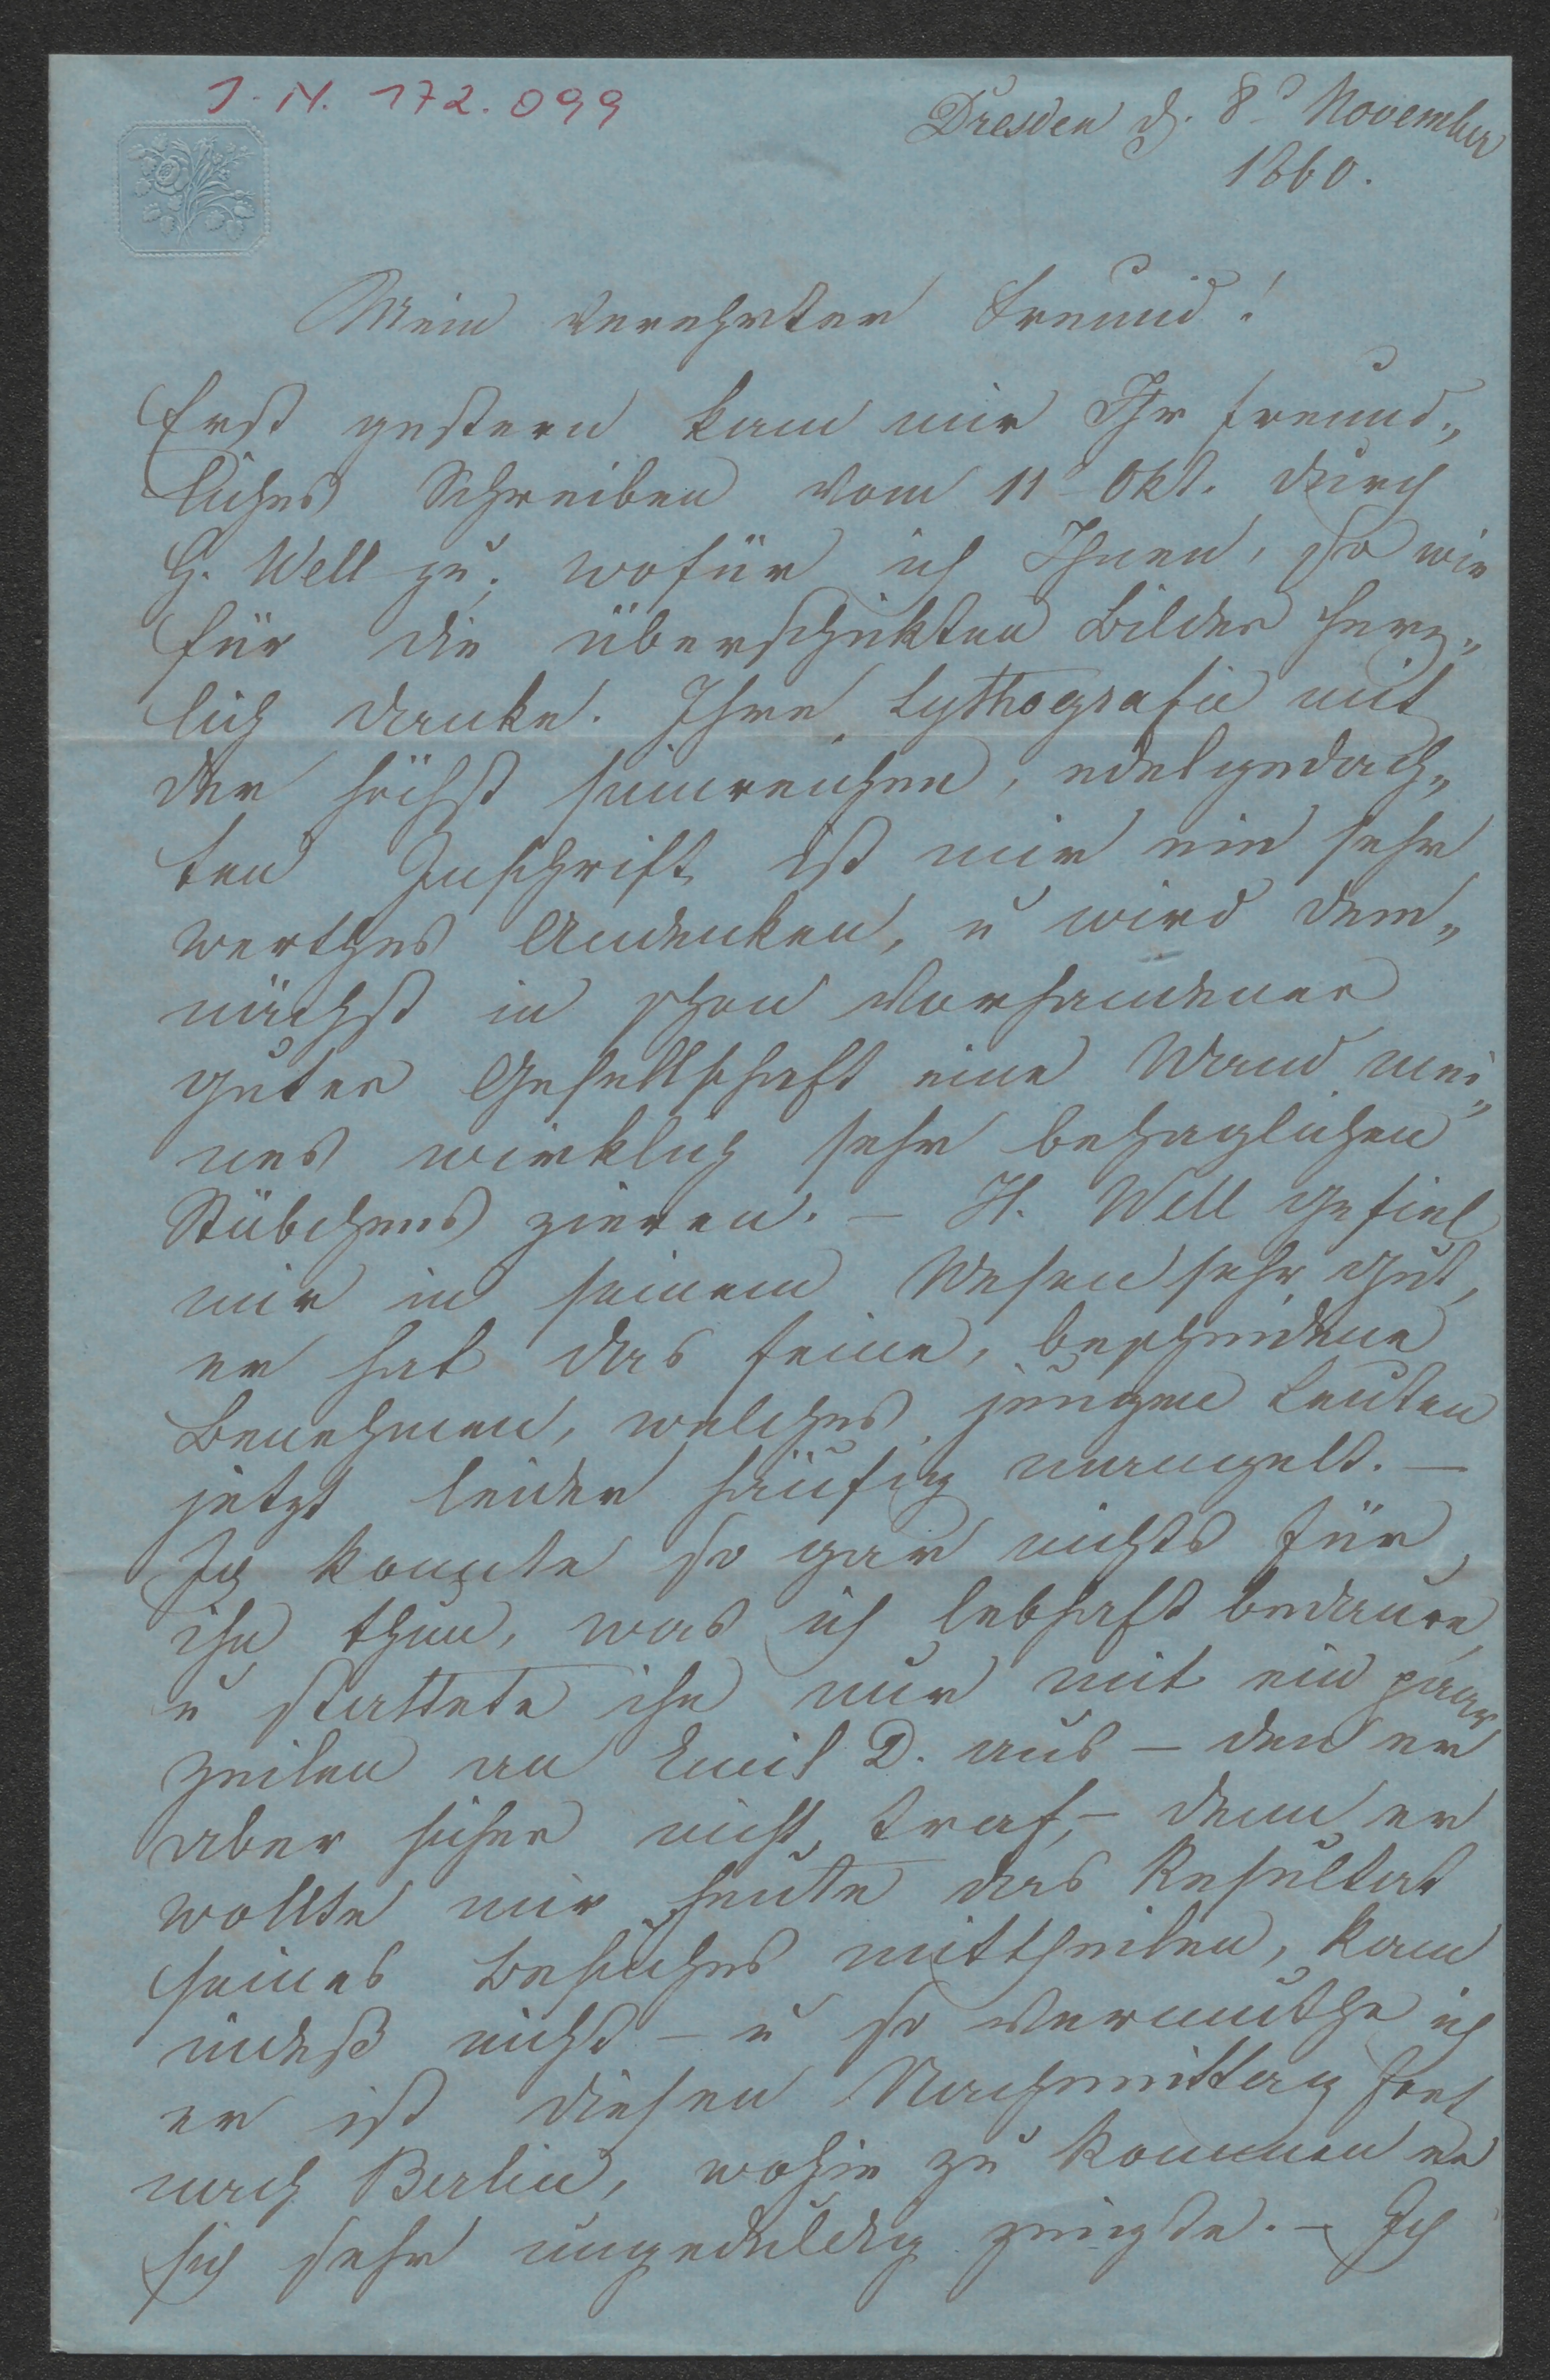 J. N. 172.099
Dresden d. 8t November
1860.
Mein verehrter Freund!
Erst gestern kam mir Ihr freund„
liches Schreiben vom 11t Okt. durch
H. Well zu; wofür ich Ihnen, so wie
für die überschikten Bilder herz„
lich danke. Ihre Lythografie mit
der höchst sinnreichen, edelgedach„
ten Inschrift ist mir ein sehr
werthes Andenken, u wird dem„
nächst in schon vorhandener
guter Gesellschaft eine Wand mei„
nes wirklich sehr behaglichen
Stübchens zieren. – H. Well gefiel
mir in seinem Wesen sehr gut,
er hat das feine, bescheidene
Benehmen, welches jungen Leuten
jetzt leider häufig mangelt. –
Ich konnte so gar nichts für
ihn thun, was ich lebhaft bedaure,
u stattete ihn nur mit ein paar
Zeilen an Emil D. aus – den er
aber sicher nicht traf, – denn er
wollte mir heute das Resultat
seines Besuches mittheilen, kam
indeß nicht – u so vermuthe ich
er ist diesen Nachmittag fort
nach Berlin, wohin zu kommen er
sich sehr ungeduldig zeigte. – Ich